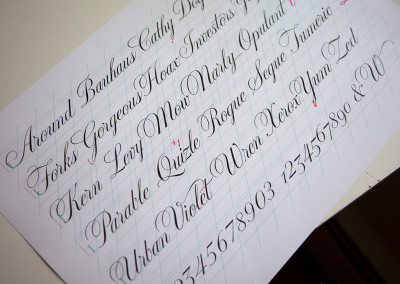 Around Bauhaus Cathy
Forks Gorgeous Hoax Investors
Kern Levy Mow Narly Opulant
Parable Quizle Rogue Segue Tumeric
Urban Violet Wren Xerox Yum Zed
12345678903 1234567890 & W